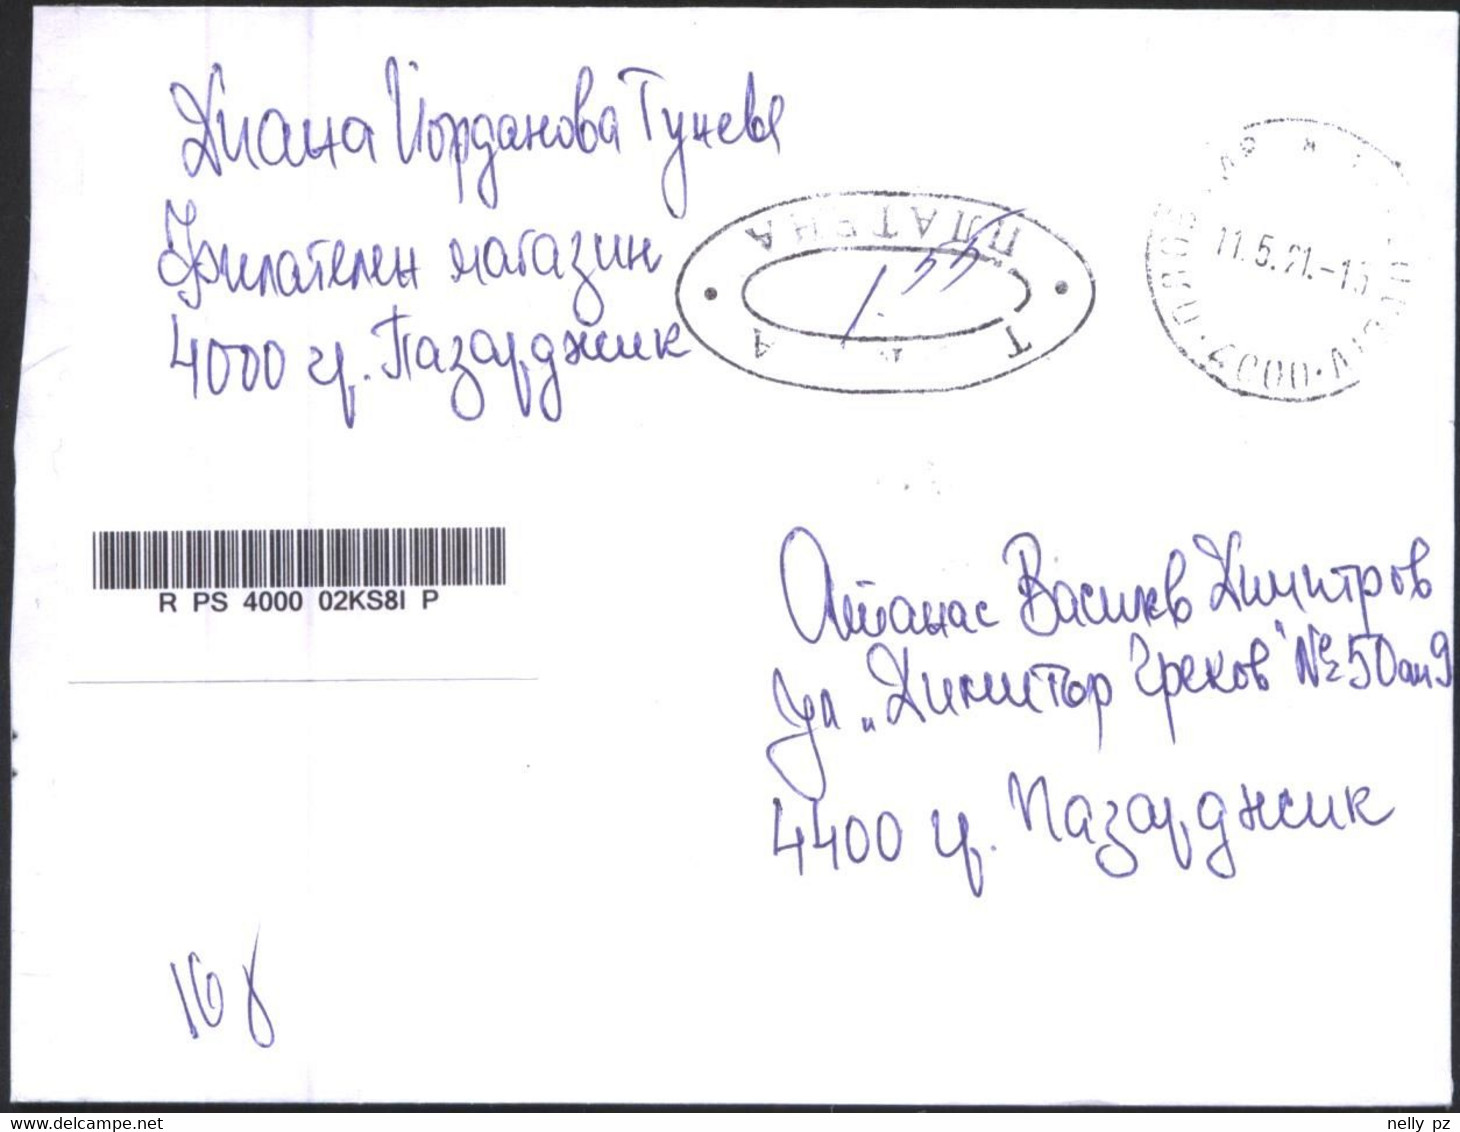 Диана Йорданова Гунева
Филателен магазин
4000 гр. Пазарджик
ПЛАТЕНА
ТАКСА
1.55
11.5.21.-15
4000 · ПЛОВДИВ
R PS 4000 02KS8I P
Атанас Василев Димитров
ул „Димитър Греков" № 50 ап 9
4400 гр. Пазарджик
10 γ
nelly pz